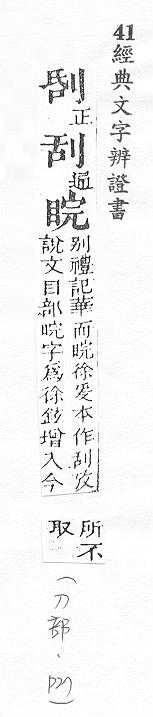 41經典文字辨證書
㓤正刮通睆別禮記華而睆徐爰本作刮攷
說文目部睆字爲徐鉉增入今
所不
取
(刀部、P27)